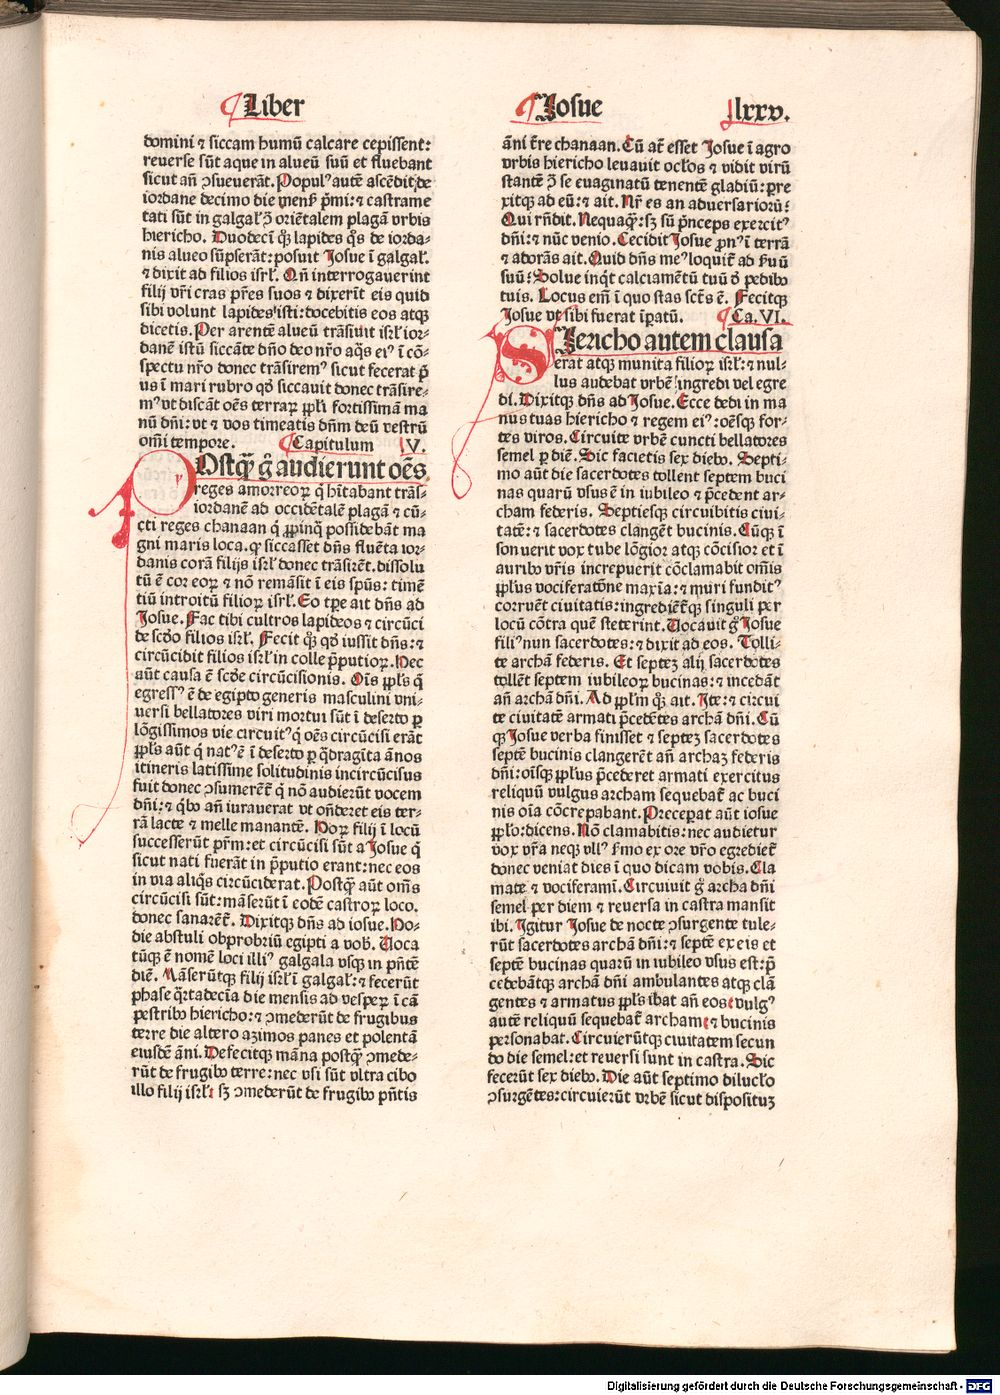 Liber
Josue
lxxv.
domini ⁊ siccam humū calcare cepissent:
reuerse sūt aque in alueū suū et fluebant
sicut añ ↄsueuerāt. Populꝰ autē ascēdit de
iordane decimo die mensꝭ p̄mi: ⁊ castrame
tati sūt in galgal̕ ↄ̄ oriētalem plagā vrbis
hiericho. Duodecī qq̄ lapides q̄s de iorda-
nis alueo sūpserāt: posuit Josue ī galgal̕.
⁊ dixit ad filios isrl̕. Qn̄ interrogauerint
filij vr̄i cras p̄res suos ⁊ dixerīt eis quid
sibi volunt lapides isti: docebitis eos atqꝫ
dicetis. Per arentē alueū trāsiuit isrl̕ ior-
danē istū siccāte dn̄o deo nr̄o aq̄s eiꝰ ī cō-
spectu nr̄o donec trāsiremꝰ sicut fecerat p̄
us ī mari rubro qd̕ siccauit donec trāsire-
mꝰ vt discāt oēs terraꝝ ꝓpl̕i fortissimā ma
nū dn̄i: vt ⁊ vos timeatis dn̄m deū vestrū
om̄i tempore. Capitulum V.
POstqꝫ̄ g̊ audierunt oēs
reges amorreoꝝ q̄ hītabant trās-
iordanē ad occidētalē plagā ⁊ cū-
cti reges chanaan q̄ ꝓpinq̄ possidebāt ma
gni maris loca. qꝛ siccasset dn̄s fluēta ior-
danis corā filijs isrl̕ donec trāsirēt. dissolu
tū ē cor eoꝝ ⁊ nō remāsit ī eis spūs: timē
tiū introitū filioꝝ isrl̕. Eo tꝑe ait dn̄s ad
Josue. Fac tibi cultros lapideos ⁊ circūci
de scd̕o filios isrl̕. Fecit qd̕ iussit dn̄s: ⁊
circūcidit filios isrl̕ in colle p̄putioꝝ. Hec
aūt causa ē scd̕e circūcisionis. Oīs ꝓpl̕s q̄
egressꝰ ē de egipto generis masculini vni-
uersi bellatores viri mortui sūt ī deserto ꝑ
lōgissimos vie circuitꝰ q̄ oēs circūcisi erāt
ꝓpl̕s aūt q̄ natꝰ ē ī deserto ꝑ q̄dragīta ānos
itineris latissime solitudinis incircūcisus
fuit donec ↄsumerēt̕ q̄ nō audierūt vocem
dn̄i: ⁊ qƀꝰ añ iurauerat vt on̄deret eis ter-
rā lacte ⁊ melle manantē. Hoꝝ filij ī locū
successerūt pr̄m: et circūcisi sūt a Josue q̄
sicut nati fuerāt in p̄putio erant: nec eos
in via aliq̄s circūciderat. Postqꝫ̄ aūt om̄s
circūcisi sūt: māserūt ī eodē castroꝝ loco.
donec sanarēt̕. Dixitqꝫ dn̄s ad iosue. Ho-
die abstuli obprobriū egipti a vob̕. Uoca
tūqꝫ ē nomē loci illiꝰ galgala vsqꝫ in p̄ntē
diē. Māserūtqꝫ filij isrl̕ ī galgal̕: ⁊ fecerūt
phase q̄rtadecīa die mensis ad vesperꝝ ī cā
pestribꝰ hiericho: ⁊ ↄmederūt de frugibus
terre die altero azimos panes et polentā
eiusdē āni. Defecitqꝫ māna postqꝫ̄ ↄmede-
rūt de frugibꝰ terre: nec vsi sūt vltra cibo
illo filij isrl̕: sꝫ ↄmederūt de frugibꝰ p̄ntis
āni t̄re chanaan. Cū at̄ esset Josue ī agro
vrbis hiericho leuauit ocl̕os ⁊ vidit virū
stantē ↄ̄ se euaginatū tenentē gladiū: ꝑre
xitqꝫ ad eū: ⁊ ait. Nr̄ es an aduersarioꝝ:
Qui rn̄dit. Nequaqꝫ̄: sꝫ sū p̄nceps exercitꝰ
dn̄i: ⁊ nūc venio. Cecidit Josue ꝓnꝰ ī terrā
⁊ adorās ait. Quid dn̄s meꝰ loquit̕ ad ẜuū
suū: Solue inq̄t calciamētū tuū d̕ pedibꝰ
tuis. Locus em̄ ī quo stas sct̄s ē. Fecitqꝫ
Josue vt sibi fuerat īꝑatū. Ca. VI.
SJericho autem clausa
erat atqꝫ munita filioꝝ isrl̕: ⁊ nul-
lus audebat vrbē ingredi vel egre
di. Dixitqꝫ dn̄s ad Josue. Ecce dedi in ma
nus tuas hiericho ⁊ regem eiꝰ: oēsqꝫ for-
tes viros. Circuite vrbē cuncti bellatores
semel ꝑ diē. Sic facietis sex diebꝰ. Septi-
mo aūt die sacerdotes tollent septem buci
nas quarū vsus ē in iubileo ⁊ p̄cedent ar-
cham federis. Septiesqꝫ circuibitis ciui-
tatē: ⁊ sacerdotes clangēt bucinis. Cūqꝫ ī
sonuerit vox tube lōgior atqꝫ cōcisior et ī
auribꝰ vr̄is increpuerit cōclamabit om̄is
ꝓpl̕us vociferatōne maxīa: ⁊ muri funditꝰ
corruēt ciuitatis: ingrediēt̕qꝫ singuli per
locū cōtra quē steterint. Uocauit g̊ Josue
filiꝰ nun sacerdotes: ⁊ dixit ad eos. Tolli-
te archā federis. Et septeꝫ alij sacerdotes
tollēt septem iubileoꝝ bucinas: ⁊ incedāt
añ archā dn̄i. Ad ꝓpl̕m qꝫ ait. Ite: ⁊ circui
te ciuitatē armati p̄cedētes archā dn̄i. Cū
qꝫ Josue verba finisset ⁊ septeꝫ sacerdotes
septē bucinis clangerēt añ archaꝫ federis
dn̄i: oīsqꝫ ꝓpl̕us p̄cederet armati exercitus
reliquū vulgus archam sequebat̕ ac buci
nis oīa cōcrepabant. Preceperat aūt iosue
ꝓpl̕o: dicens. Nō clamabitis: nec audietur
vox vr̄a neqꝫ vllꝰ ẜmo ex ore vr̄o egrediet̕
donec veniat dies ī quo dicam vobis. Cla
mate ⁊ vociferamī. Circuiuit g̊ archa dn̄i
semel per diem ⁊ reuersa in castra mansit
ibi. Igitur Josue de nocte ↄsurgente tule-
rūt sacerdotes archā dn̄i: ⁊ septē ex eis et
septē bucinas quarū in iubileo vsus est: p̄
cedebātqꝫ archā dn̄i ambulantes atqꝫ clā
gentes ⁊ armatus ꝓpl̕s ibat añ eos: vulgꝰ
autē reliquū sequebat̕ archam: ⁊ bucinis
personabat. Circuierūtqꝫ ciuitatem secun
do die semel: et reuersi sunt in castra. Sic
fecerūt sex diebꝰ. Die aūt septimo dilucl̕o
ↄsurgētes: circuierūt vrbē sicut disposituꝫ
Digitalisierung gefördert durch die Deutsche Forschungsgemeinschaft - DFG